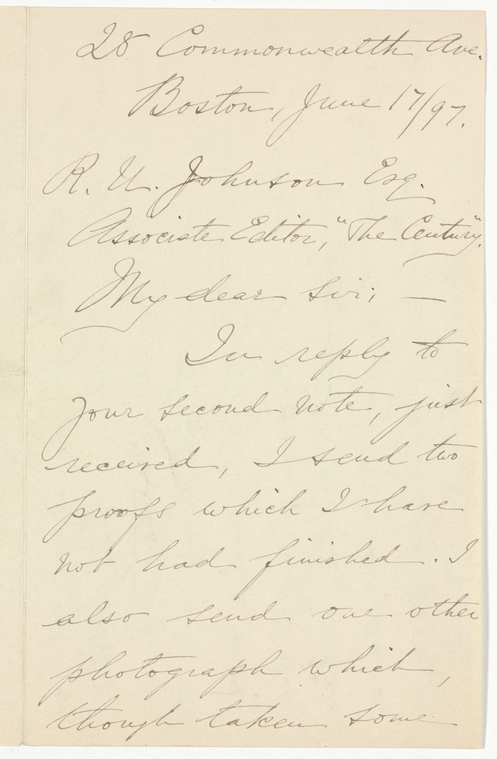 28 Commonwealth Ave.
Boston, June 17/97.
R. U. Johnson Esq.
Associate Editor, "The Century".
My dear Sir; —
In reply to
your second note, just
received, I send two
proofs which I have
not had finished. I
also send one other
photograph which,
though taken some